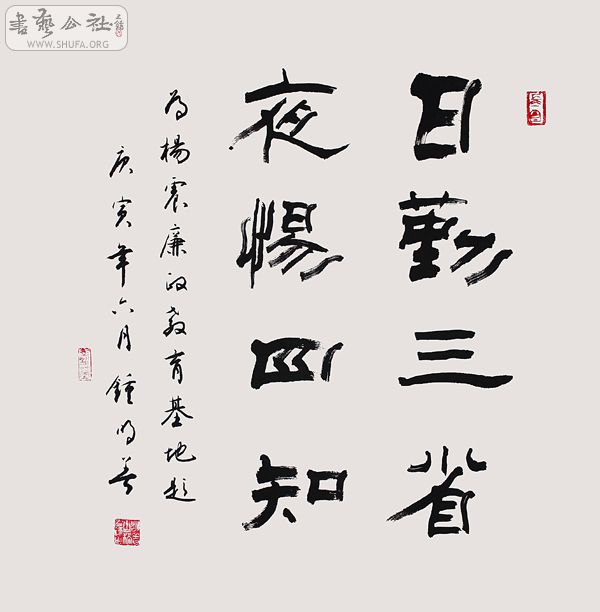 日勤三省
夜惕四知
为楊震廉政教育基地题
庚寅年六月鍾明善
書藝公社
WWW.SHUFA.ORG